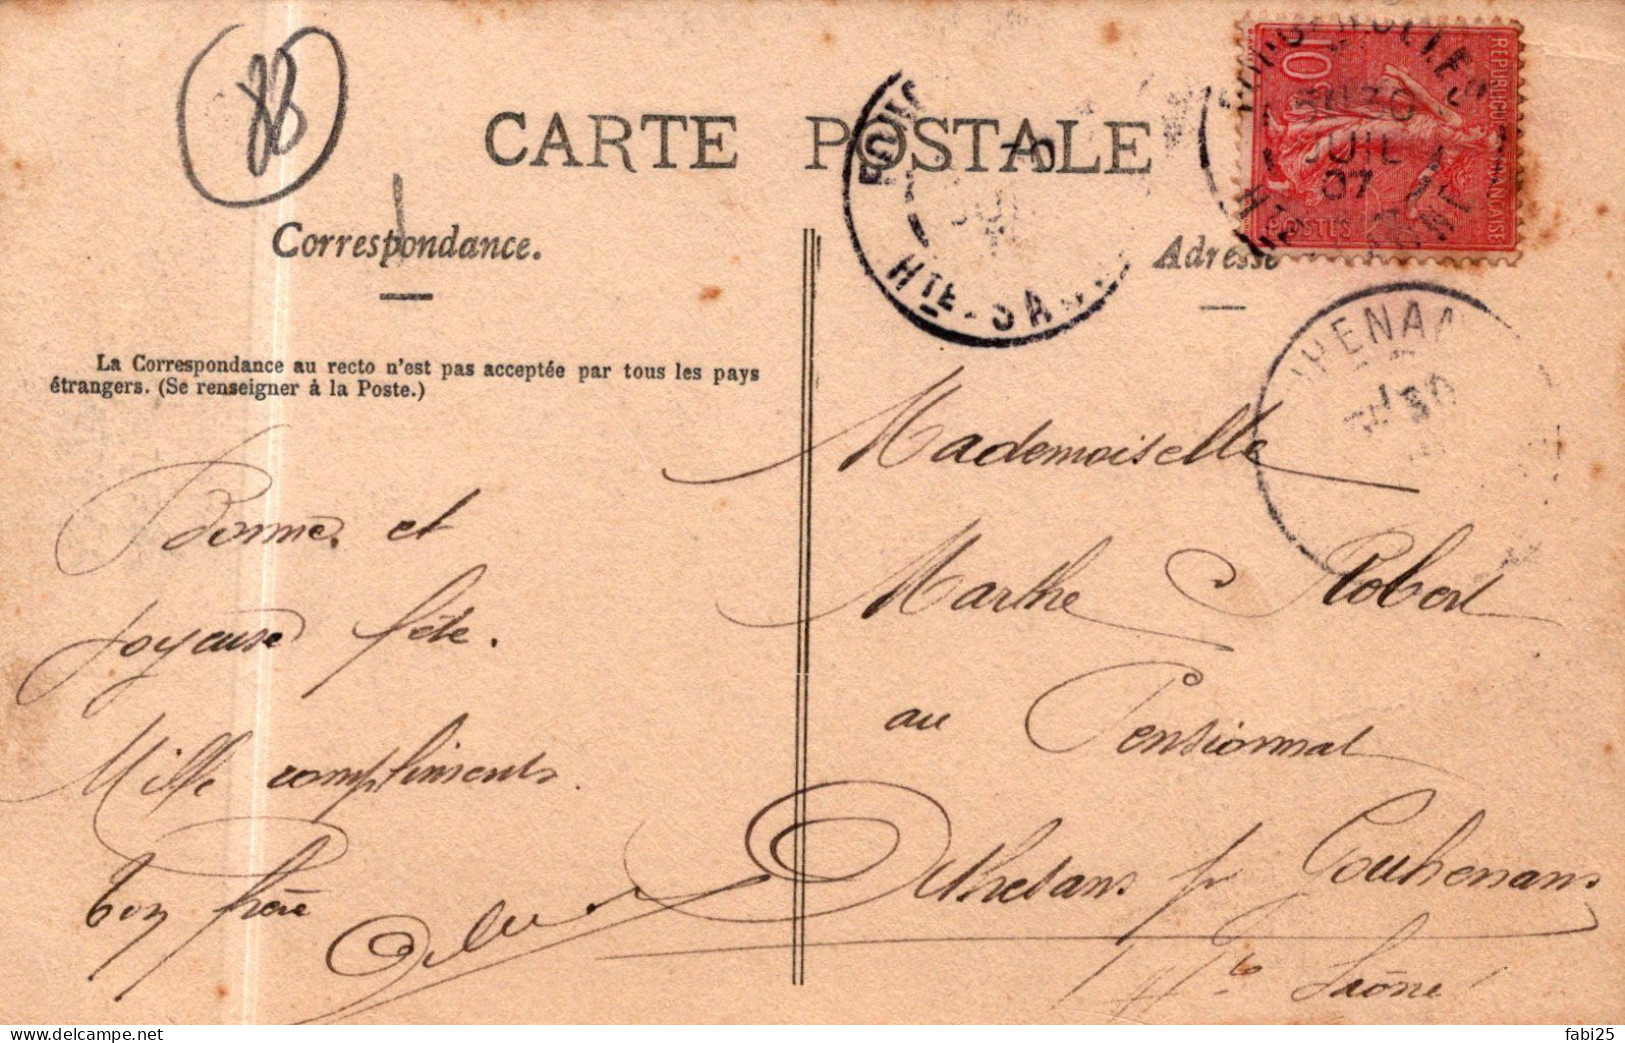 88
CARTE POSTALE
Correspondance.
Adresse
La Correspondance au recto n'est pas acceptée par tous les pays
étrangers. (Se renseigner à la Poste.)
Bonne et
joyeuse fête.
Mille compliments.
Ton frère
Mademoiselle
Marthe Robert
au Pensionnat
Athesans pr Gouhenans
Hte Saône
10
REPUBLIQUE FRANÇAISE
POSTES
30
JUIL
07
HTE-SAO
HENAN
30
fabi25